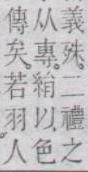 義殊。二禮之
从專。絹以色
傳矣。若羽人